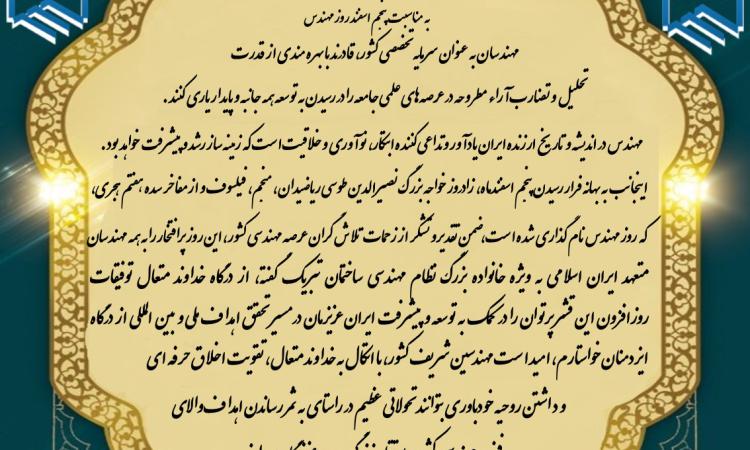 به مناسبت پنجم اسفند روز مهندس
مهندسان به عنوان سرمایه تخصصی کشور، قادرند با بهره مندی از قدرت
تحلیل و تضارب آراء مطروحه در عرصه های علمی جامعه را در رسیدن به توسعه همه جانبه و پایدار یاری کنند.
مهندس در اندیشه و تاریخ ارزنده ایران یادآور و تداعی کننده ابتکار، نوآوری و خلاقیت است که زمینه ساز رشد و پیشرفت خواهد بود.
اینجانب به بهانه فرا رسیدن پنجم اسفندماه، زادروز خواجه بزرگ نصیرالدین طوسی ریاضیدان، منجم، فیلسوف و از مفاخر سده هفتم هجری،
که روز مهندس نام گذاری شده است، ضمن تقدیر و تشکر از زحمات تلاش گران عرصه مهندسی کشور، این روز پرافتخار را به همه مهندسان
متعهد ایران اسلامی به ویژه خانواده بزرگ نظام مهندسی ساختمان تبریک گفته، از درگاه خداوند متعال توفیقات
روزافزون این قشر پرتوان را در کمک به توسعه و پیشرفت ایران عزیزمان در مسیر تحقق اهداف ملی و بین المللی از درگاه
ایزد منان خواستارم، امید است مهندسین شریف کشور، با اتکال به خداوند متعال، تقویت اخلاق حرفه ای
و داشتن روحیه خودباوری بتوانند تحولاتی عظیم در راستای به ثمر رساندن اهداف والای